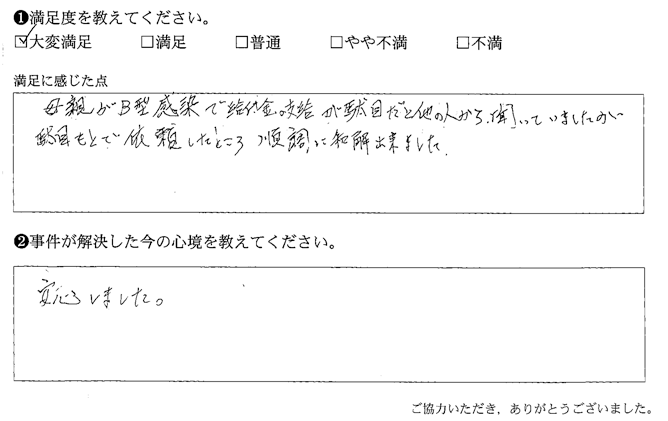 ❶満足度を教えてください。
☑大変満足 □満足 □普通 □やや不満 □不満
満足に感じた点
母親がB型感染で給付金の支給が駄目だと他の人から聞いていましたが
駄目もとで依頼したところ順調に和解出来ました。
❷事件が解決した今の心境を教えてください。
安心しました。
ご協力いただき，ありがとうございました。